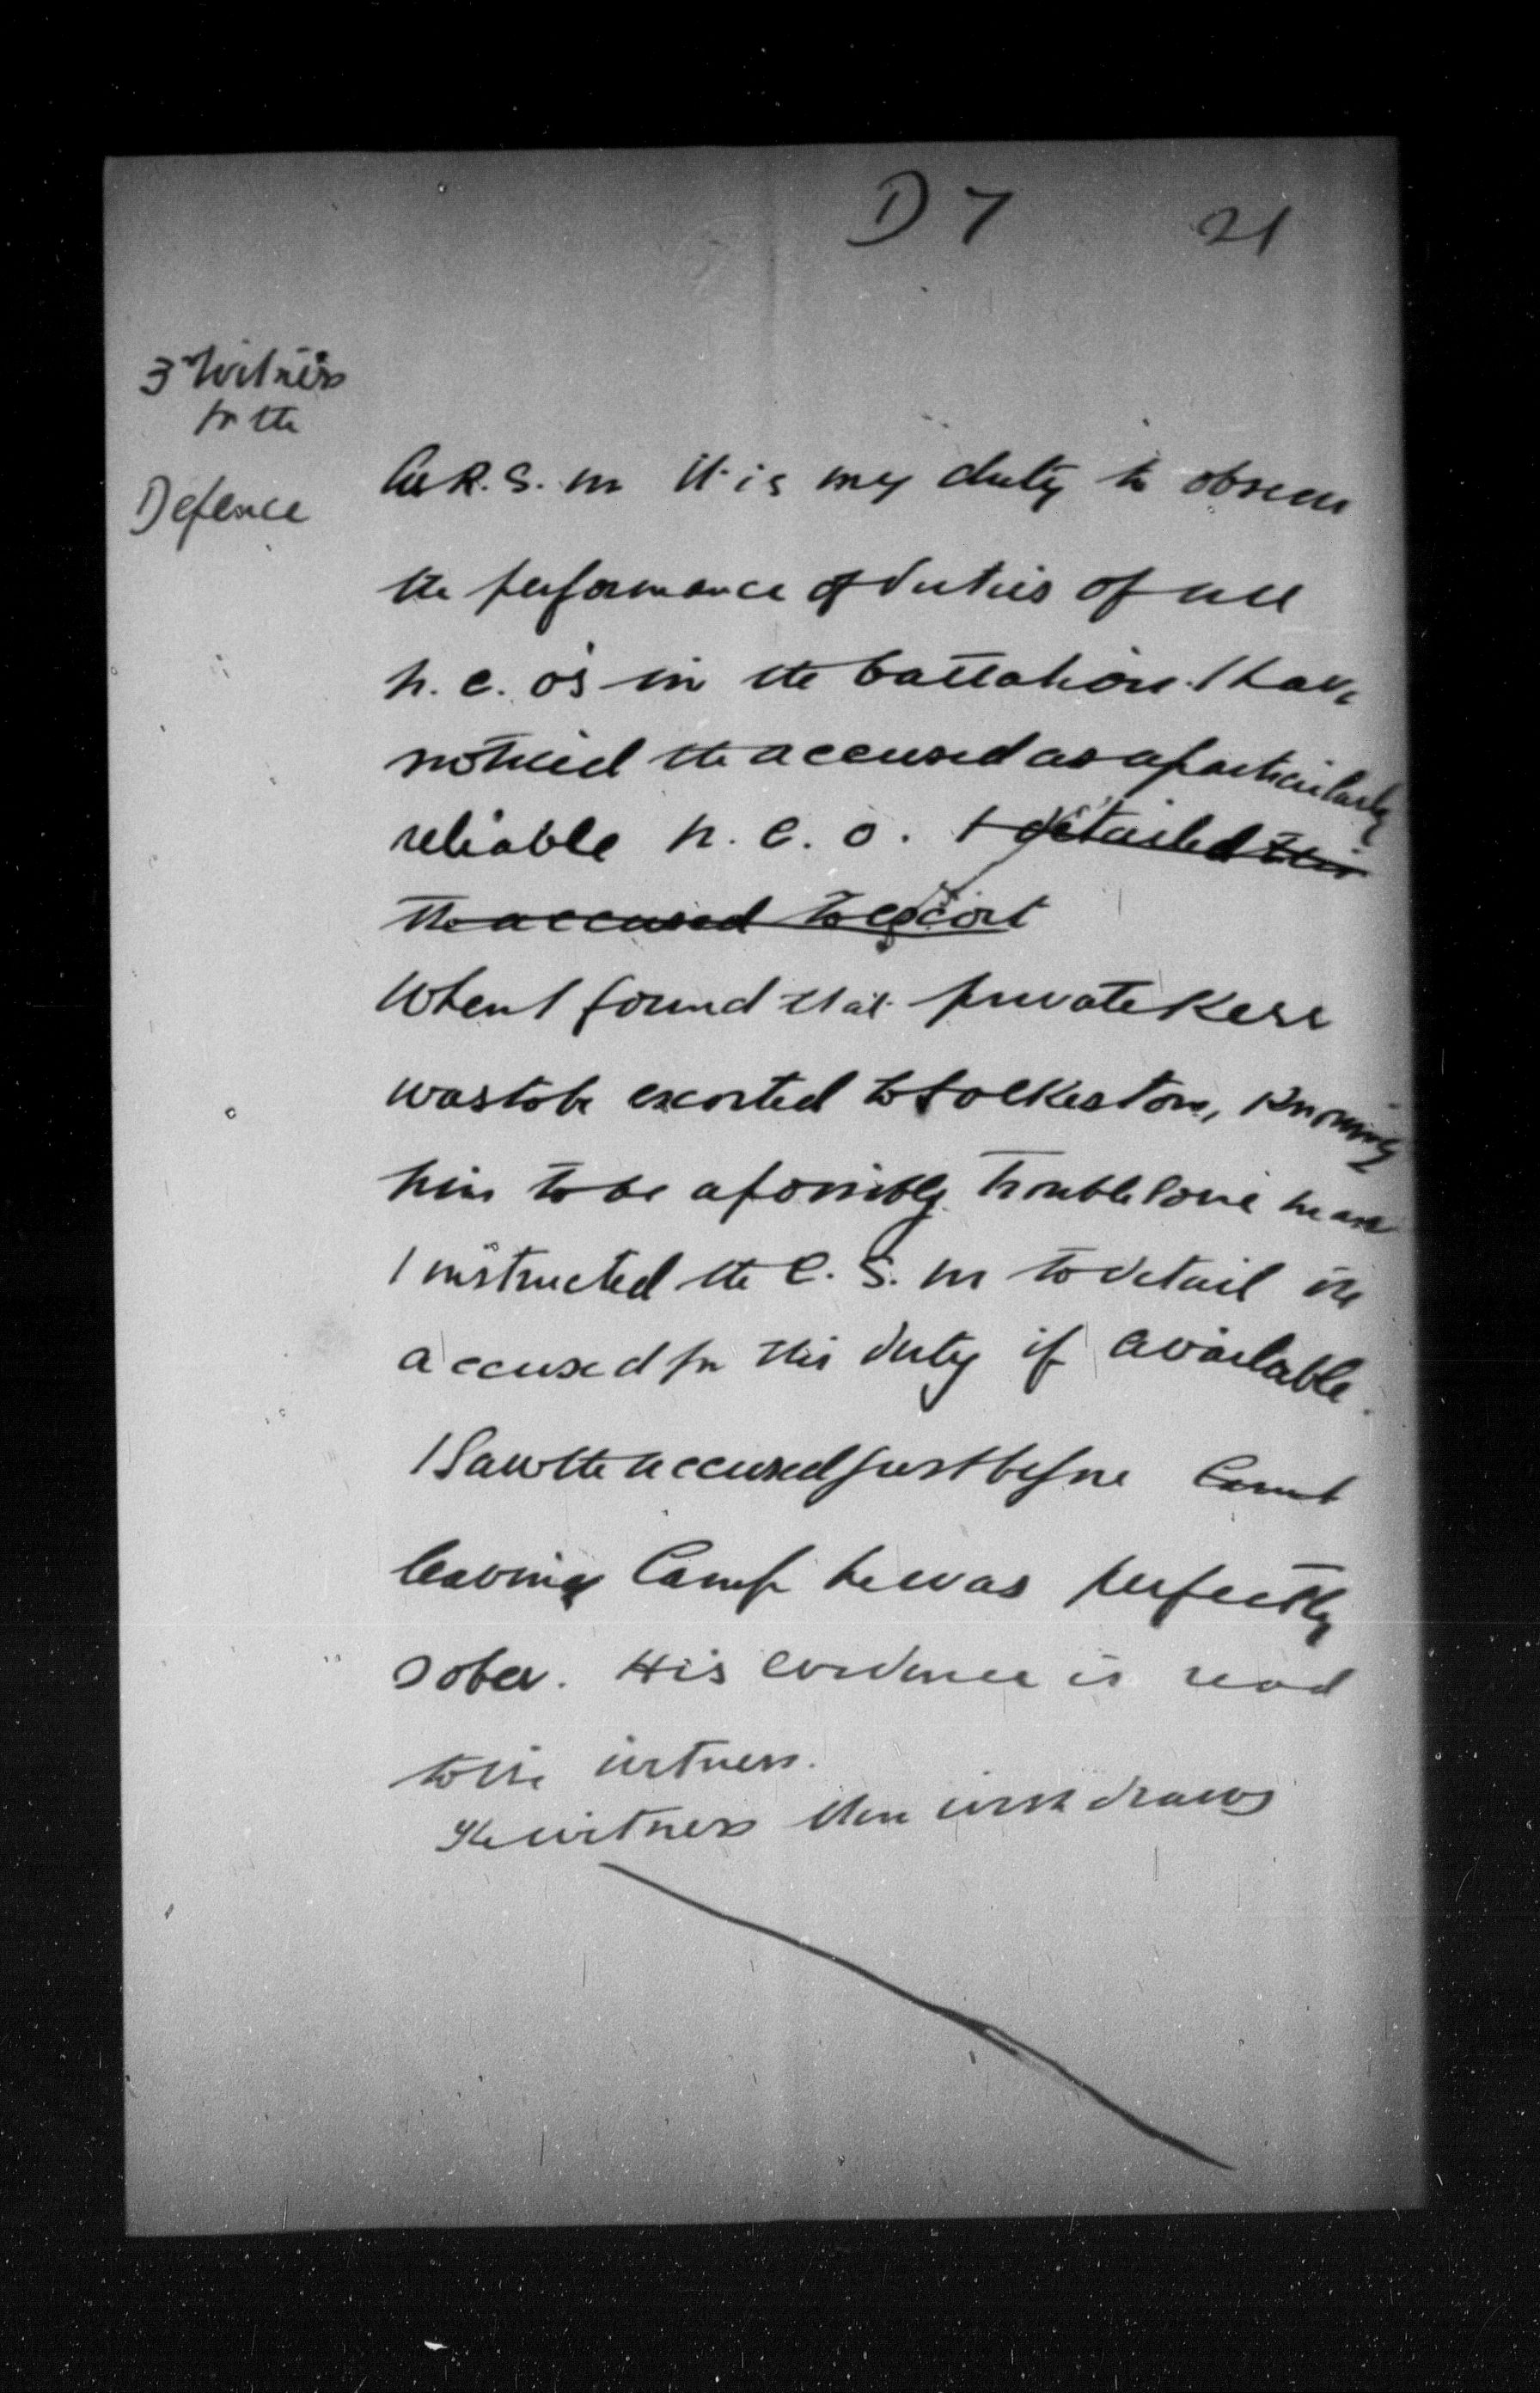 D 7 21
3rd Witness
for the
Defence
As R. S. M it is my duty to observe
the performance of duties of all
N. C. O's in the battalion. I have
noticed the accused as a particularly
reliable N. C. O. I detailed this
the accused to escort
When I found that private Kerr
was to be escorted to Folkestone, knowing
him to be a possibly troublesome man
I instructed the C. S. M to detail the
accused for this duty if available.
I saw the accused just before
leaving Camp he was perfectly
sober. His evidence is read
to the witness.
The witness then withdraws